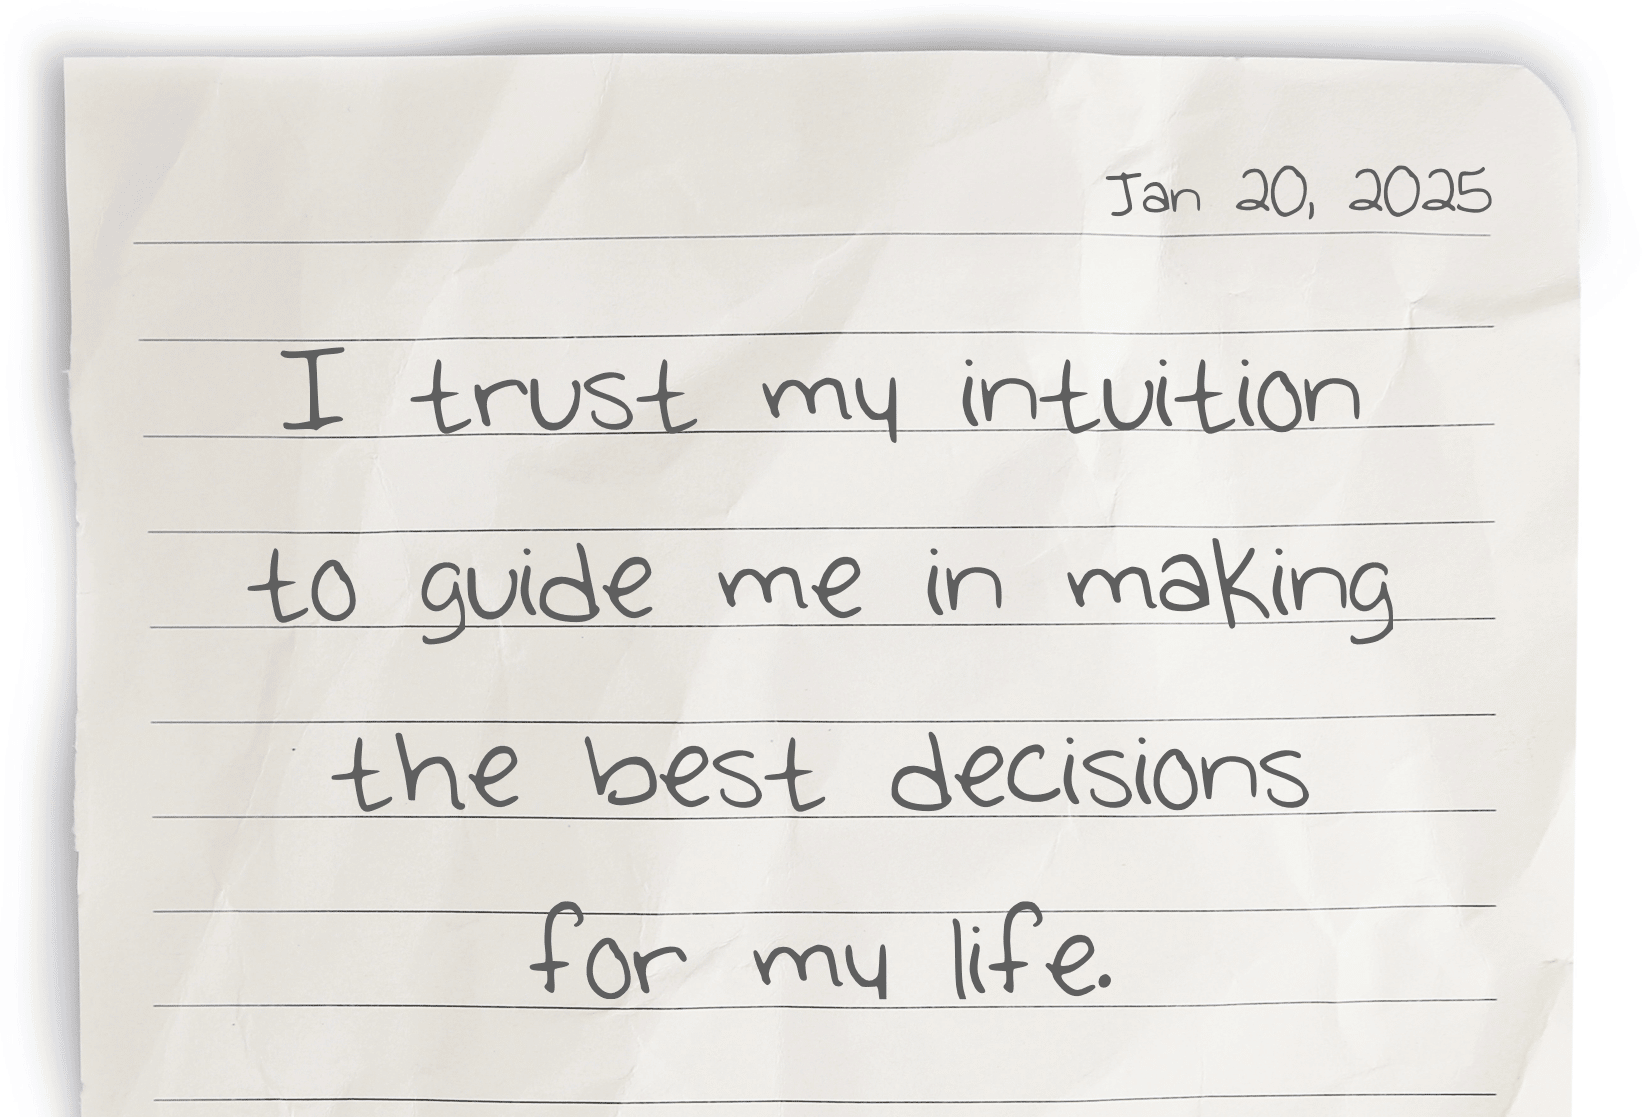 Jan 20, 2025
I trust my intuition
to guide me in making
the best decisions
for my life.